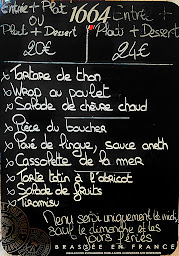 1664
Entrée + Plat
ou
Plat + Dessert
20€
Entrée +
Plat + Dessert
24€
x Tartare de thon
x Wrap au poulet
x Salade de chèvre chaud
x Pièce du boucher
x Pavé de lingue, sauce aneth
x Cassolette de la mer
x Tarte tatin à l'abricot
x Salade de fruits
x Tiramisu
Menu servi uniquement le midi,
sauf le dimanche et les
jours fériés
BRASSÉE EN FRANCE